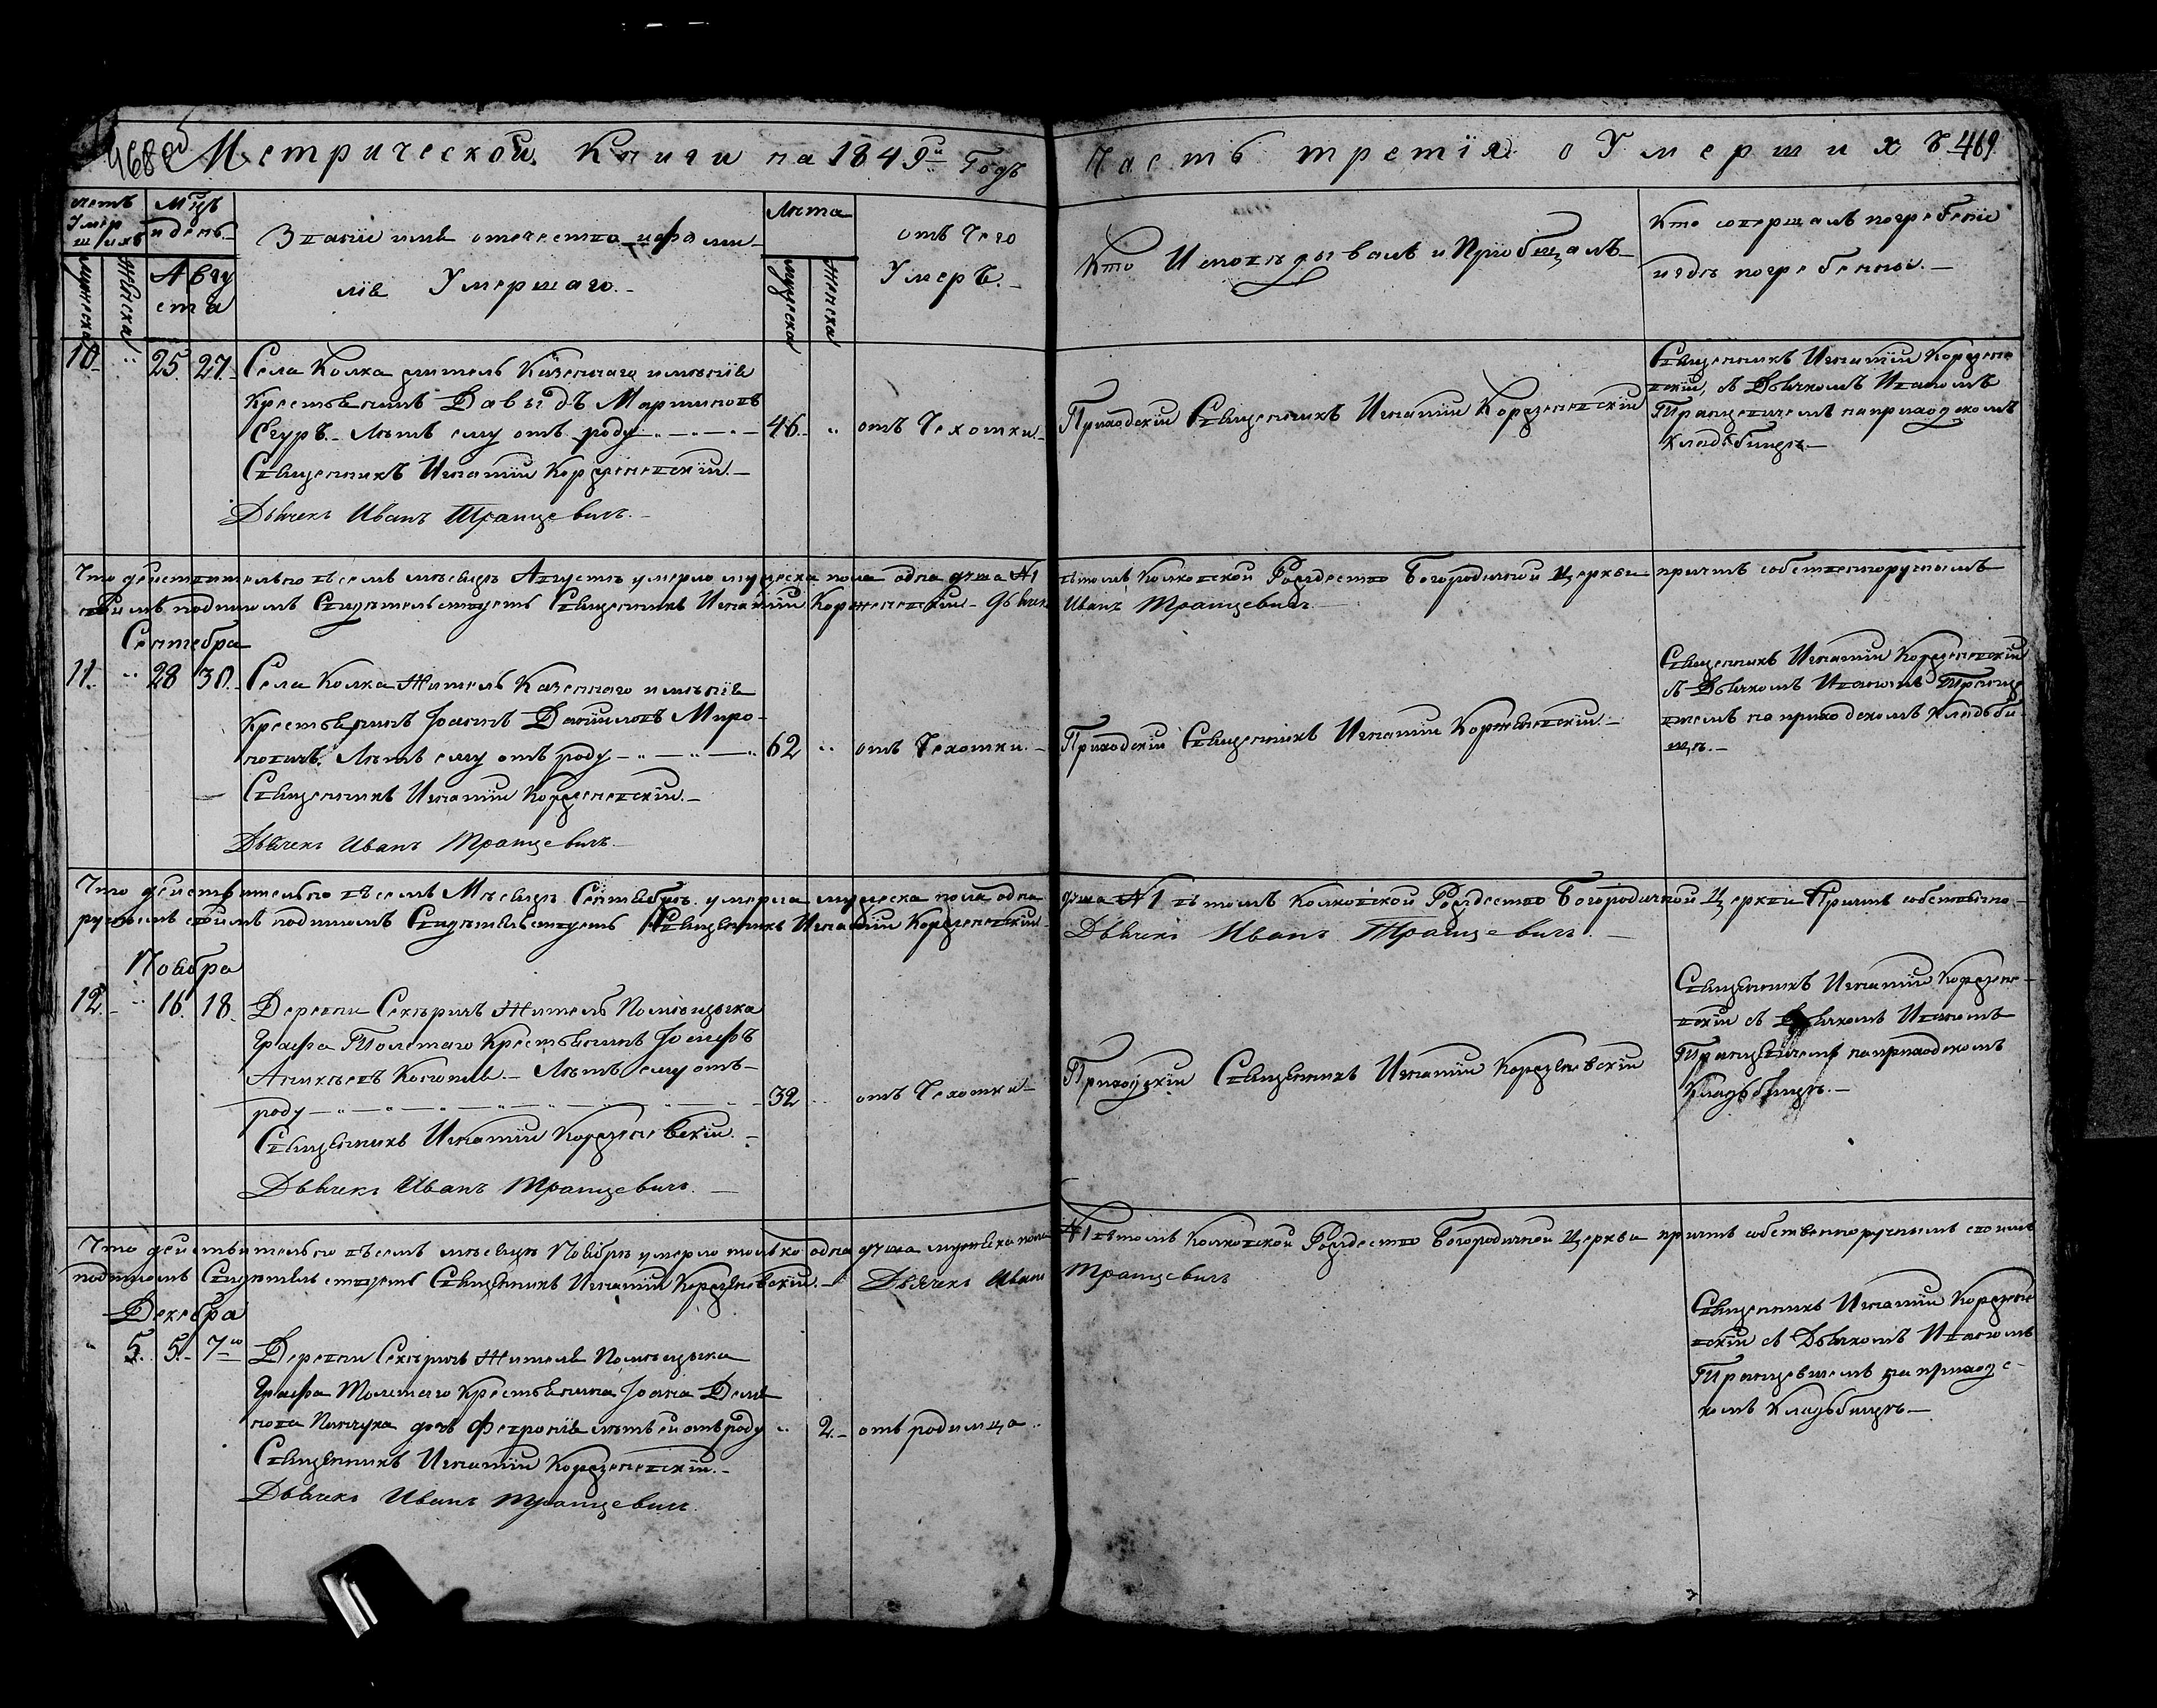 468
Метрической Книги на 1849й Годъ
Часть третія о Умершихъ
469
счетъ Умершихъ
Мцъ и день
Званіе имя отечество и фами-
лія Умершаго.-
Лѣта
отъ Чего
Умеръ.-
Кто Исповѣдывалъ и Пріобщалъ
Кто совершалъ погребеніе
и гдѣ погребенны.-
мужеска
Женска
Авгу
ста
мужеска
Женска
10. 25. 27. Села Колка житель Казеннаго имѣнія
Крестьянинъ Давыдъ Мартиновъ
Лѣтъ ему отъ роду 46. отъ Чехотки
Священникъ Игнатій Корженевскій.-
Дьячекъ Иванъ Транцевичъ.-
Приходскій Священникъ Игнатій Корженевскій
Священникъ Игнатій Коржене
вскій, съ Дьячкомъ Иваномъ
Транцевичемъ на приходскомъ
кладбищѣ.-
Что действительно въ семъ мѣсяцѣ Августѣ умерло мужеска пола одна душа №1 въ томъ Колковской Рождество Богородичной Церкви причтъ собственноручнымъ
своимъ подписомъ Свидѣтельствуетъ Священникъ Игнатій Корженевскій- Дьячекъ Иванъ Транцевичъ
Сентября
11. 28 30. Села Колка Житель Казеннаго имѣнія
Крестьянинъ Іоаннъ Даниловъ Миро-
новичъ. Лѣтъ ему отъ роду 62 отъ Чехотки.-
Священникъ Игнатій Корженевскій.-
Дьячекъ Иванъ Транцевичъ.
Приходскій Священникъ Игнатій Корженевскій.-
Священникъ Игнатій Корженевскій
съ Дьячкомъ Иваномъ Транце
вичемъ на приходскомъ Кладби-
щѣ.-
Что действительно въ семъ Мѣсяцѣ Сентябрѣ умерла мужеска пола одна душа №1 въ томъ Колковской Рождество Богородичной Церкви Причтъ собственно-
ручнымъ своимъ подписомъ Свидѣтельствуетъ Священникъ Игнатій Корженевскій Дьячекъ Иванъ Транцевичъ.-
Ноября
12. 16. 18. Деревни Секѣричъ Житель Помѣщика
Графа Толстаго Крестьянинъ Іосифъ
Лѣтъ ему отъ-
роду 32 отъ Чехотки
Священникъ Игнатій Корженевскій.-
Дьячекъ Иванъ Транцевичъ.
Приходскій Священникъ Игнатій Корженевскій
Священникъ Игнатій Коржене-
вскій съ Дьячкомъ Иваномъ
Транцевичемъ на приходскомъ
Кладбищѣ.-
Что действительно въ семъ мѣсяцѣ Ноябрѣ умерло только одна душа мужеска пола №1 въ томъ Колковской Рождество Богородичной Церкви причтъ собственноручнымъ своимъ
подписомъ Свидѣтельствуетъ Священникъ Игнатій Корженевскій.- Дьячекъ Иванъ Транцевичъ
Декабря
5. 5. 7го Деревни Секѣричъ Жителя Помѣщика
Графа Толстаго Крестьянина Іоана Демя
нова дочь Февронія лѣтъ ей отъ роду 2.- отъ родимца
Священникъ Игнатій Корженевскій.-
Дьячекъ Иванъ Транцевичъ
Священникъ Игнатій Коржене
вскій съ Дьячкомъ Иваномъ
Транцевичемъ на приходс-
комъ Кладбищѣ.-